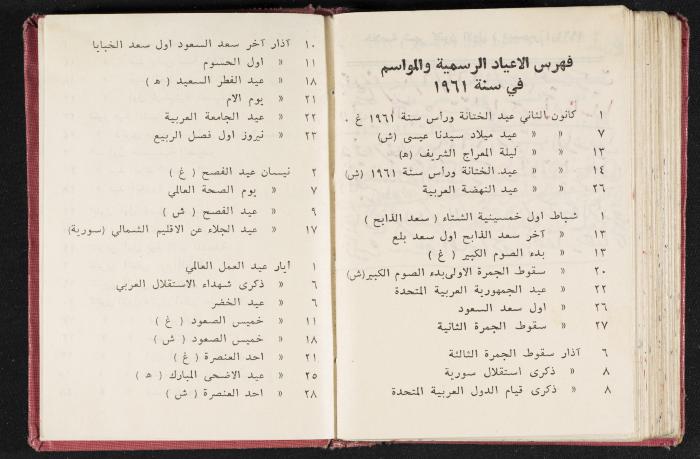 فهرس الاعياد الرسمية والمواسم
في سنة ١٩٦١
١ كانون الثاني عيد الختانة ورأس سنة ١٩٦١ غ .
٧ « « عيد ميلاد سيدنا عيسى (ش)
١٣ « « ليلة المعراج الشريف (ه)
١٤ « « عيد الختانة ورأس سنة ١٩٦١ (ش)
٢٦ « « عيد النهضة العربية
١ شباط اول خمسينية الشتاء ( سعد الذابح )
١٣ « آخر سعد الذابح اول سعد بلع
١٣ « بدء الصوم الكبير ( غ )
٢٠ « سقوط الجمرة الاولى بدء الصوم الكبير(ش)
٢٢ « عيد الجمهورية العربية المتحدة
٢٦ « اول سعد السعود
٢٧ « سقوط الجمرة الثانية
٦ آذار سقوط الجمرة الثالثة
٨ « ذكرى استقلال سورية
٨ « ذكرى قيام الدول العربية المتحدة
١٠ آذار آخر سعد السعود اول سعد الخبايا
١١ « اول الحسوم
١٨ « عيد الفطر السعيد ( ه )
٢١ « يوم الام
٢٢ « عيد الجامعة العربية
٢٣ « نيروز اول فصل الربيع
٢ نيسان عيد الفصح ( غ )
٧ « يوم الصحة العالمي
٩ « عيد الفصح ( ش )
١٧ « عيد الجلاء عن الاقليم الشمالي (سورية)
١ أيار عيد العمل العالمي
٦ « ذكرى شهداء الاستقلال العربي
٦ « عيد الخضر
١١ « خميس الصعود ( غ )
١٨ « خميس الصعود ( ش )
٢١ « احد العنصرة ( غ )
٢٥ « عيد الاضحى المبارك ( ه )
٢٨ « احد العنصرة ( ش )